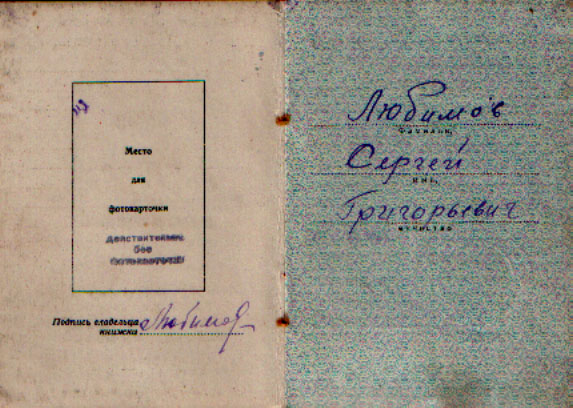 Место
для
фотокарточки
действительно
без
фотокарточки
Подпись владельца
книжки
Любимов
Любимов
Фамилия,
Сергей
имя,
Григорьевич
отчество